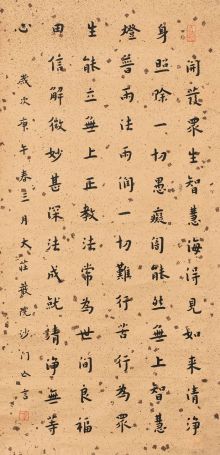 開發眾生智慧海得見如來清淨
身照除一切愚癡闇能然無上智慧
燈普雨法雨潤一切難行苦行為眾
生能立無上正教法常為世間良福
田信解微妙甚深法成就清淨無等
心 歲次庚午春三月大莊嚴院沙门